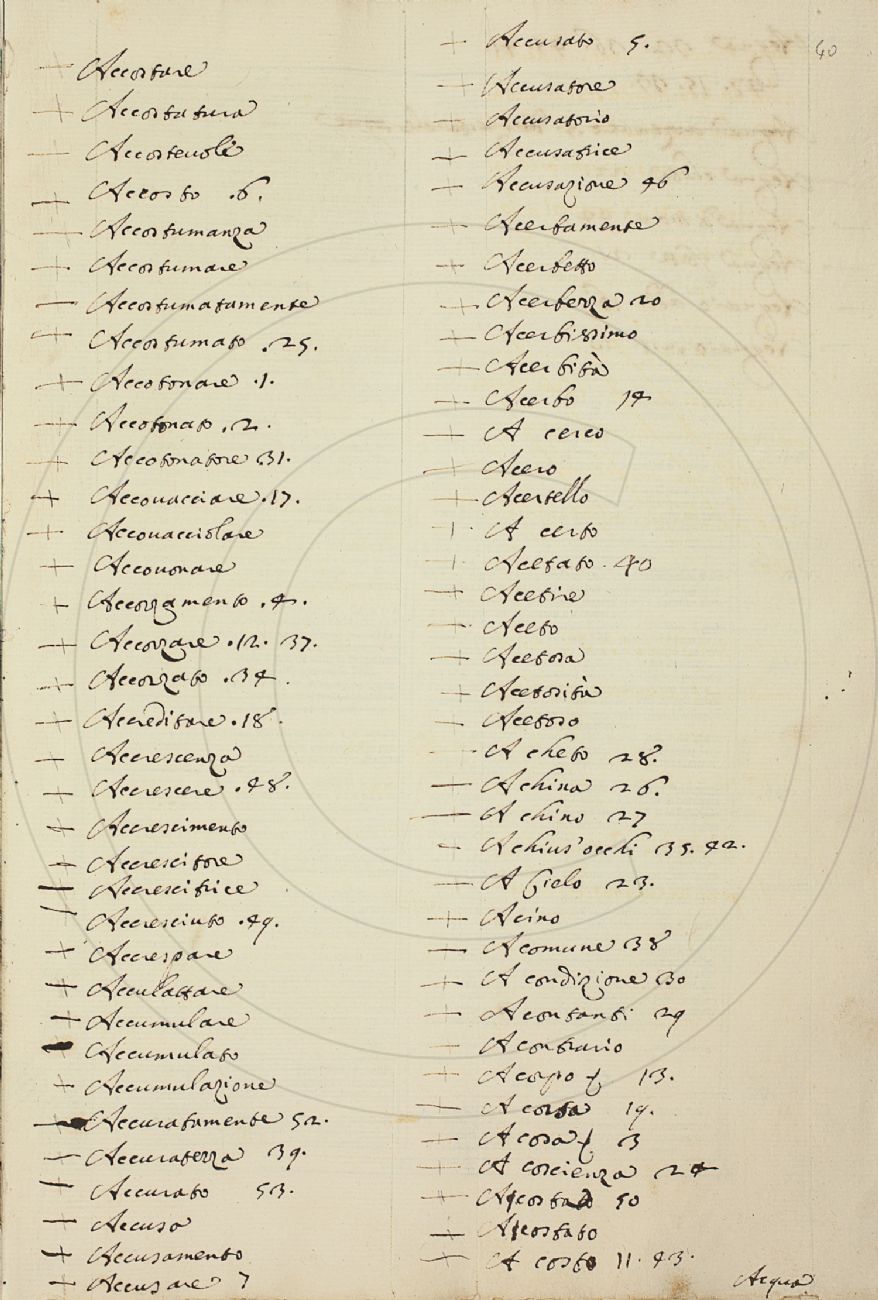 40
Accostare
Accostatura
Accostevole
Accosto .6.
Accostumanza
Accostumare
Accostumatamente
Accostumato .25.
Accotonare .1.
Accotonato .2.
Accotonatore 31.
Accovacciare .17.
Accovacciolare
Accovonare
Accozzamento .4.
Accozzare .12. 37.
Accozzato .34.
Accreditare .18.
Accrescenza
Accrescere .48.
Accrescimento
Accrescitore
Accrescitrice
Accresciuto .49.
Accrespare
Acculattare
Accumulare
Accumulato
Accumulazione
Accuratamente 52.
Accuratezza 39.
Accurato 53.
Accusa
Accusamento
Accusare 7
Accusato 5.
Accusatore
Accusatorio
Accusatrice
Accusazione 46
Acerbamente
Acerbetto
Acerbezza 20
Acerbissimo
Acerbità
Acerbo 14
A cerco
Acero
Acertello
A certo
Acetato . 40
Acetire
Aceto
Acetosa
Acetosità
Acetoso
A cheto 28.
A china 26.
A chino 27
A chius'occhi 35. 42.
A Cielo 23.
Acino
A comune 38
A condizione 30
A contanti 29
A contrario
A corpo 13.
A corsa 19.
A cosa 3
A coscienza 24
Acostad 50
Acostato
A costo 11. 43.
Acqua